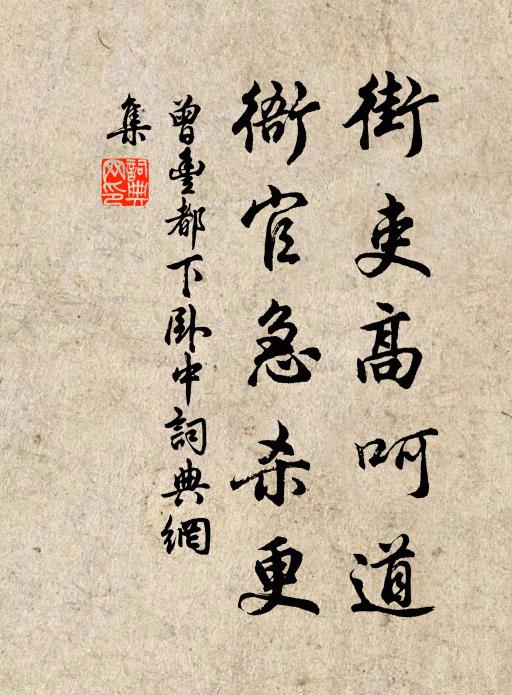 街吏高呵道
衙官急杀更
曾豐都下臥中詞典網
集
詞典
网印